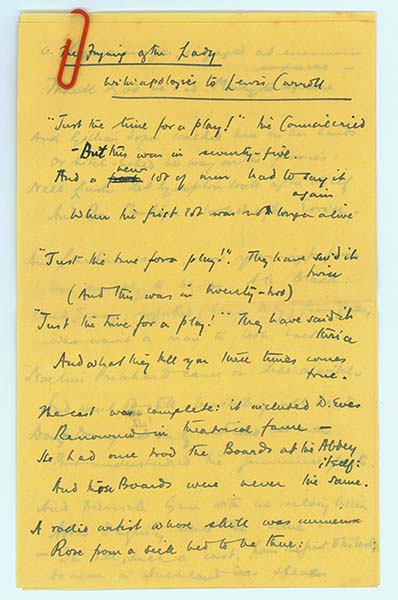 The Frying of the Lady
with apologies to Lewis Carroll
"Just the time for a play!" the Council cried
- But this was in seventy-five.
And a new lot of men had to say it
again
When the first lot was no longer alive
"Just the time for a play!". They have said it
twice
(And this was in twenty-two)
"Just the time for a play!" They have said it
thrice
And what they tell you three times comes
true.
The cast was complete: it included D. Eves
Renowned in theatrical fame —
He had once trod the Boards at the Abbey
itself:
And those Boards were never the same.
A radio artist whose skill was immense
Rose from a sick bed to be there;